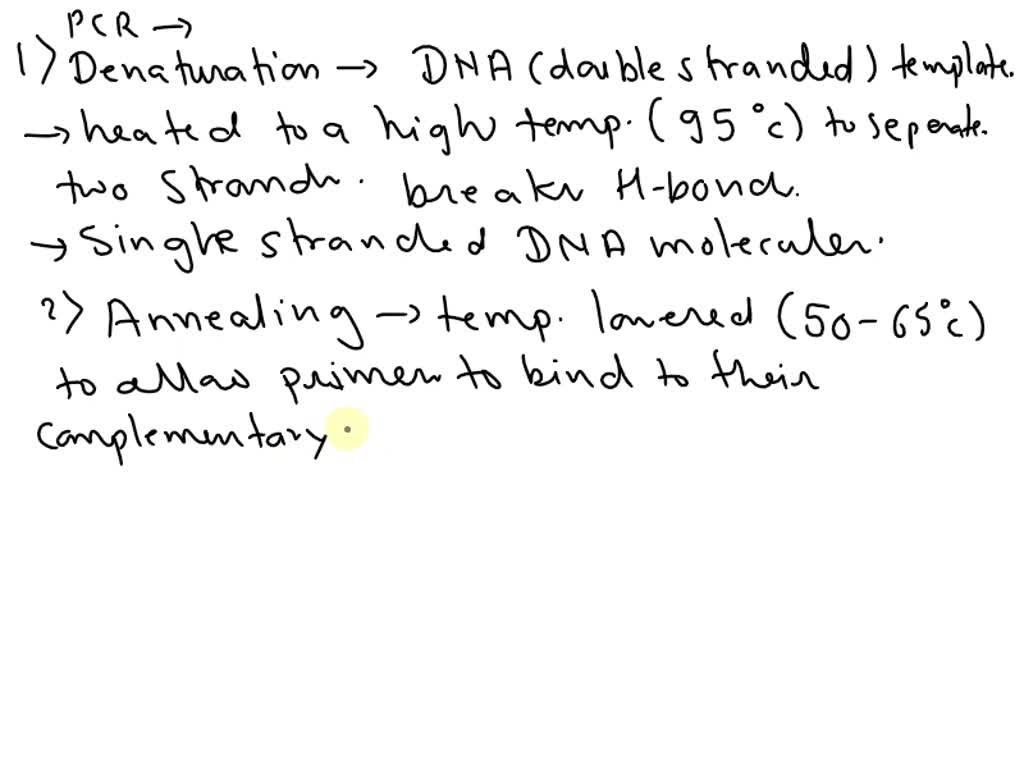 PCR →
1) Denaturation → DNA (double stranded) template.
→ heated to a high temp. (95°c) to seperate.
two strands. breaks H-bond.
→ Single stranded DNA molecules.
2) Annealing → temp. lowered (50-65°c)
to allow primers to bind to their
complementary